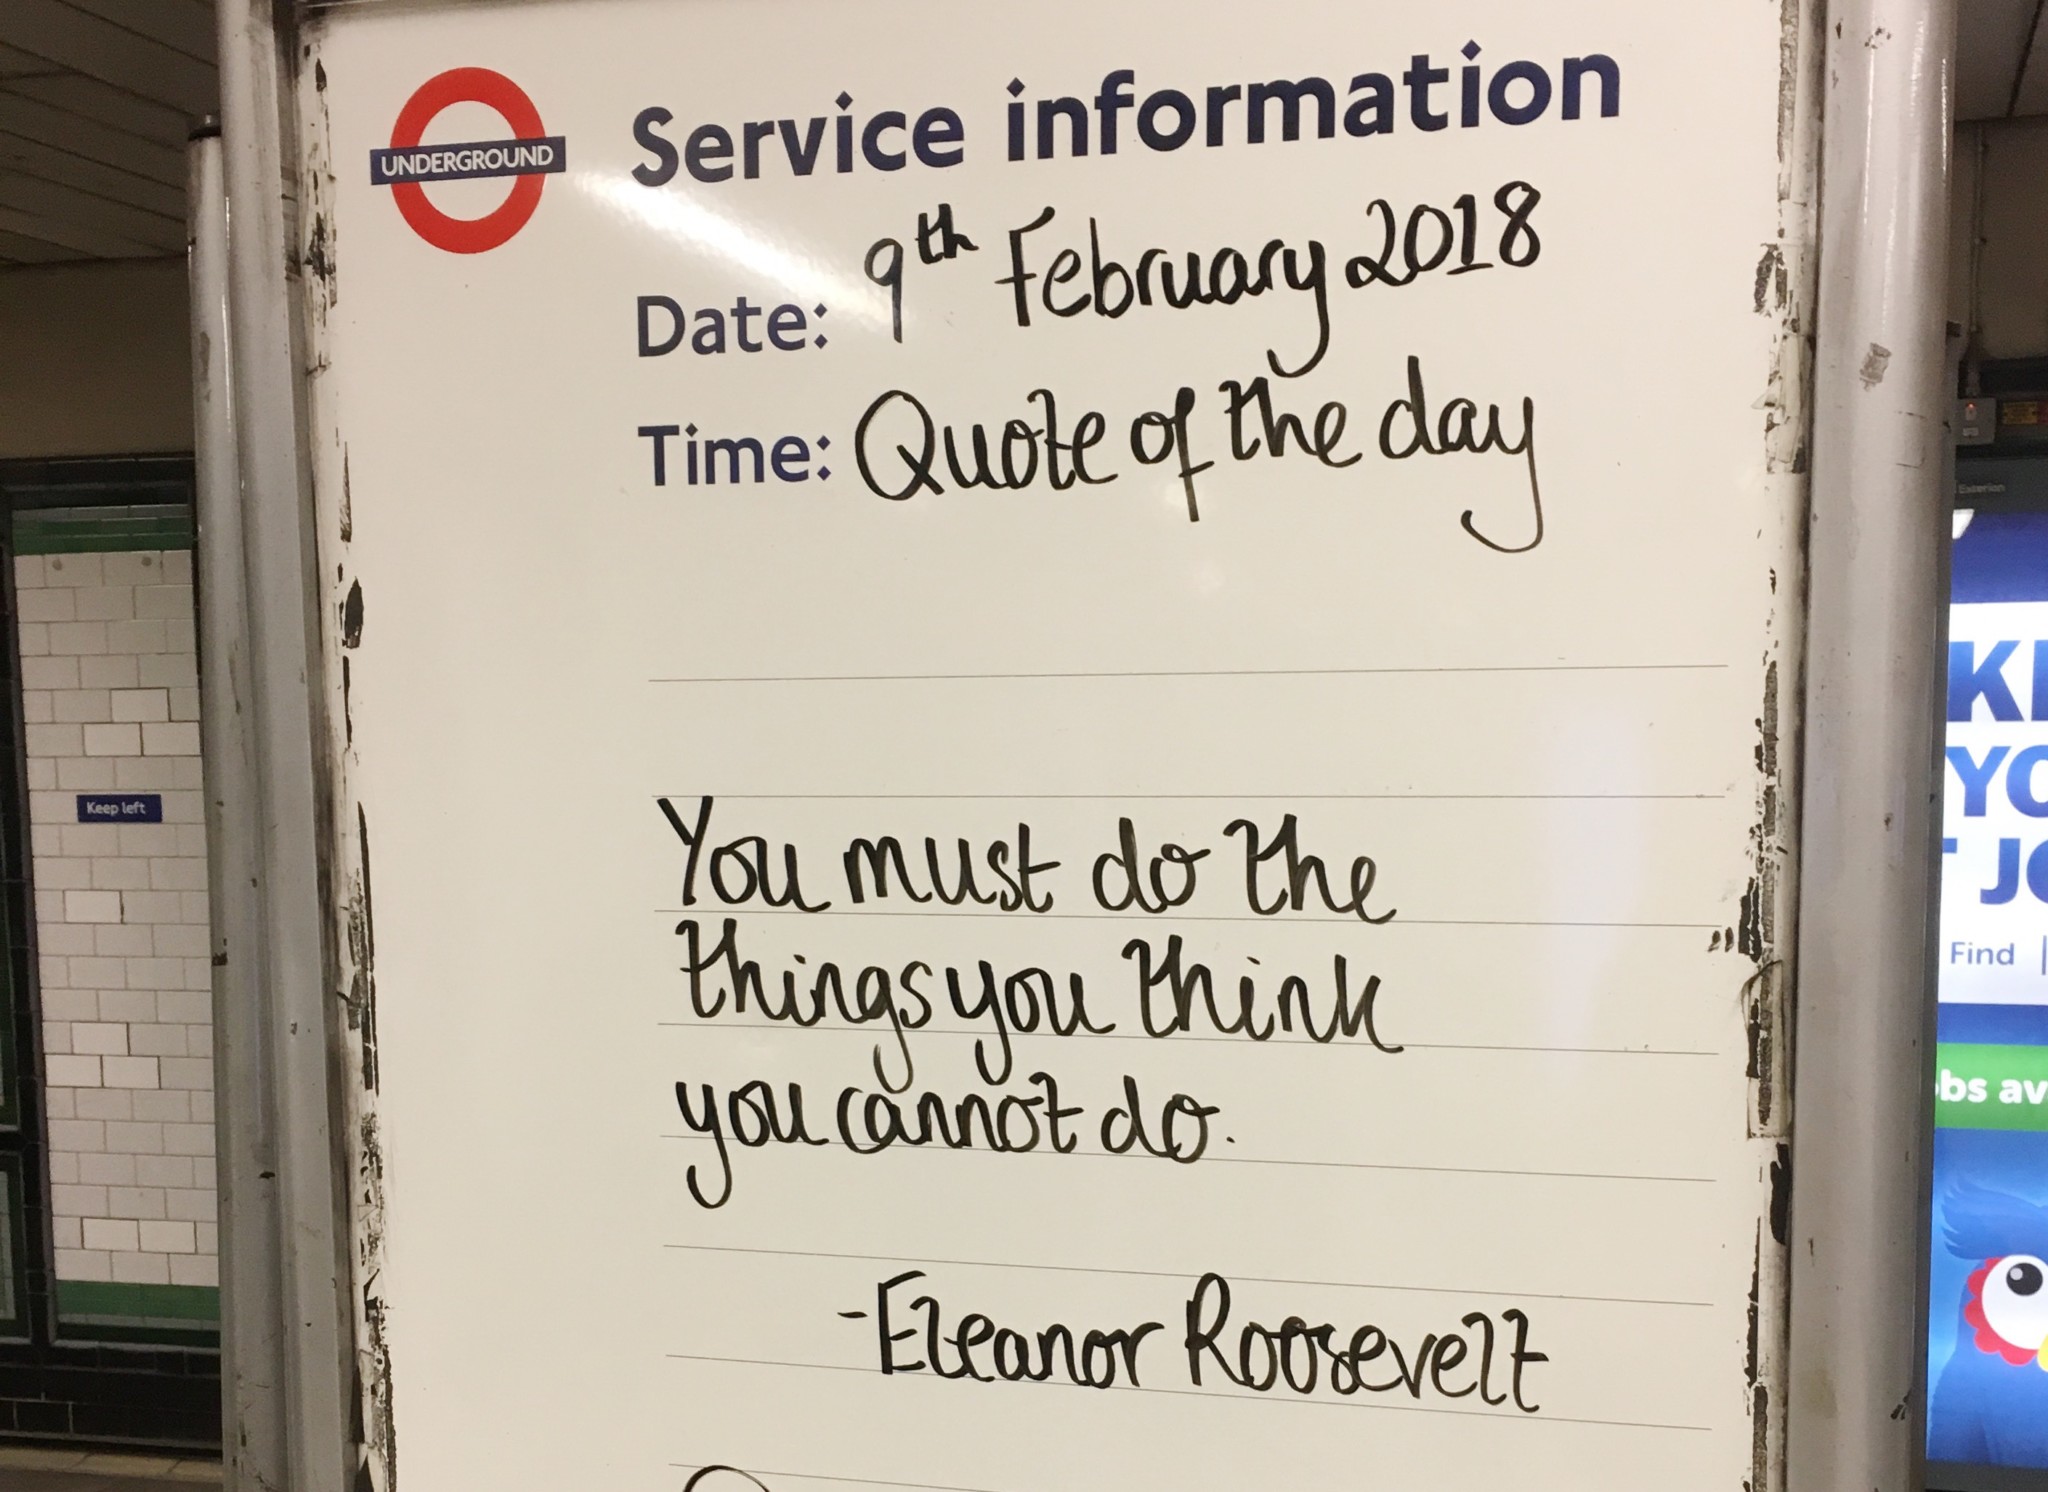 UNDERGROUND
Service information
Date: 9th February 2018
Time: Quote of the day
You must do the
things you think
you cannot do.
-Eleanor Roosevelt
Keep left
Exterion
Find |